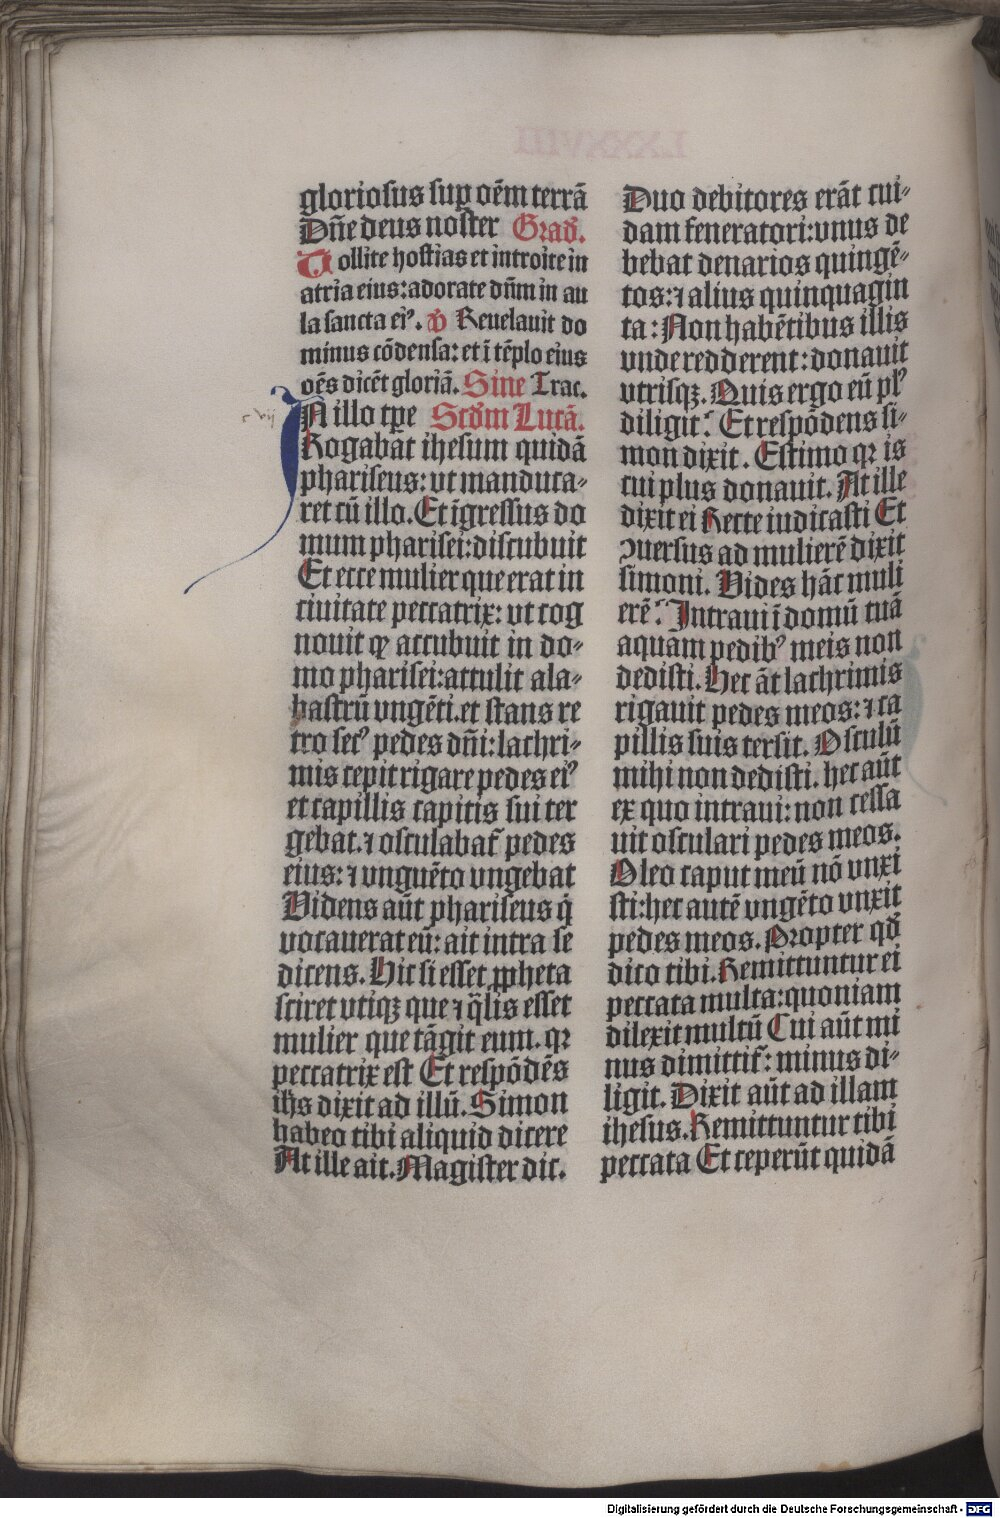 gloriosus sup oēm terrā
Dñe deus noster Grad̄.
Tollite hostias et introite in
atria eius: adorate dñm in au
la sancta eiꝰ. ℣ Reuelauit do
minus cōdensa: et ī tēplo eius
oēs dicēt gloriā. Sine Trac.
IN illo tpe Scd̄m Lucā.
Rogabat ihesum quidā
phariseus: vt manduca-
ret cū illo. Et īgressus do
mum pharisei: discubuit
Et ecce mulier que erat in
ciuitate peccatrix: vt cog
nouit ꝙ accubuit in do-
mo pharisei: attulit ala-
bastrū vngēti. et stans re
tro secꝰ pedes dñi: lachri-
mis cepit rigare pedes eiꝰ
et capillis capitis sui ter
gebat. ⁊ osculabat̄ pedes
eius: ⁊ vnguēto vngebat
Videns aūt phariseus q̄
vocauerat eū: ait intra se
dicens. Hic si esset ꝓpheta
sciret vtiqꝫ que ⁊ q̄lis esset
mulier que tāgit eum. qꝛ
peccatrix est Et respōdēs
ih̄s dixit ad illū. Simon
habeo tibi aliquid dicere
At ille ait. Magister dic.
Duo debitores erāt cui-
dam feneratori: vnus de
bebat denarios quingē-
tos: ⁊ alius quinquagin
ta: Non habētibus illis
vnde redderent: donauit
vtrisqꝫ. Quis ergo eū plꝰ
diligit? Et respōdens si-
mon dixit. Estimo qꝛ is
cui plus donauit. At ille
dixit ei Recte iudicasti Et
ꝯuersus ad mulierē dixit
simoni. Vides hāc muli
erē? Intraui ī domū tuā
aquam pedibꝰ meis non
dedisti. Hec āt lachrimis
rigauit pedes meos: ⁊ ca
pillis suis tersit. Osculū
mihi non dedisti. hec aūt
ex quo intraui: non cessa
uit osculari pedes meos.
Oleo caput meū nō vnxi
sti: hec autē vngēto vnxit
pedes meos. Propter qd̄
dico tibi. Remittuntur ei
peccata multa: quoniam
dilexit multū Cui aūt mi
nus dimittit̄: minus di-
ligit. Dixit aūt ad illam
ihesus. Remittuntur tibi
peccata Et ceperūt quidā
Digitalisierung gefördert durch die Deutsche Forschungsgemeinschaft - DFG